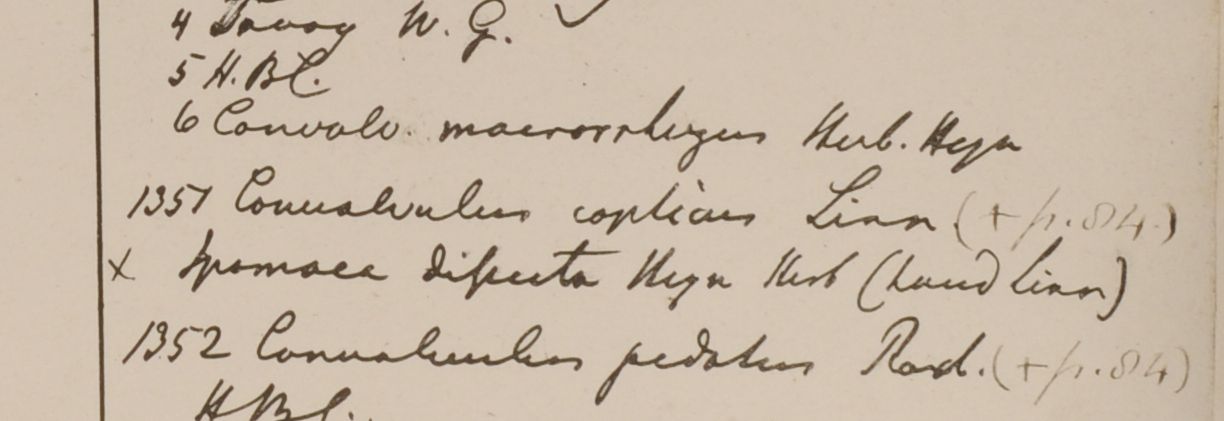 4 Tavoy W. G. ✓
5 H.BC.
6 Convolv. macrorrhyzus Herb. Heyn
1351 Convolvulus copticus Linn (+ p. 84.)
x Ipomaea dissecta Heyn Herb (haud Linn)
1352 Convolvulus pedatus Rox. (+ p. 84)
H.BC.